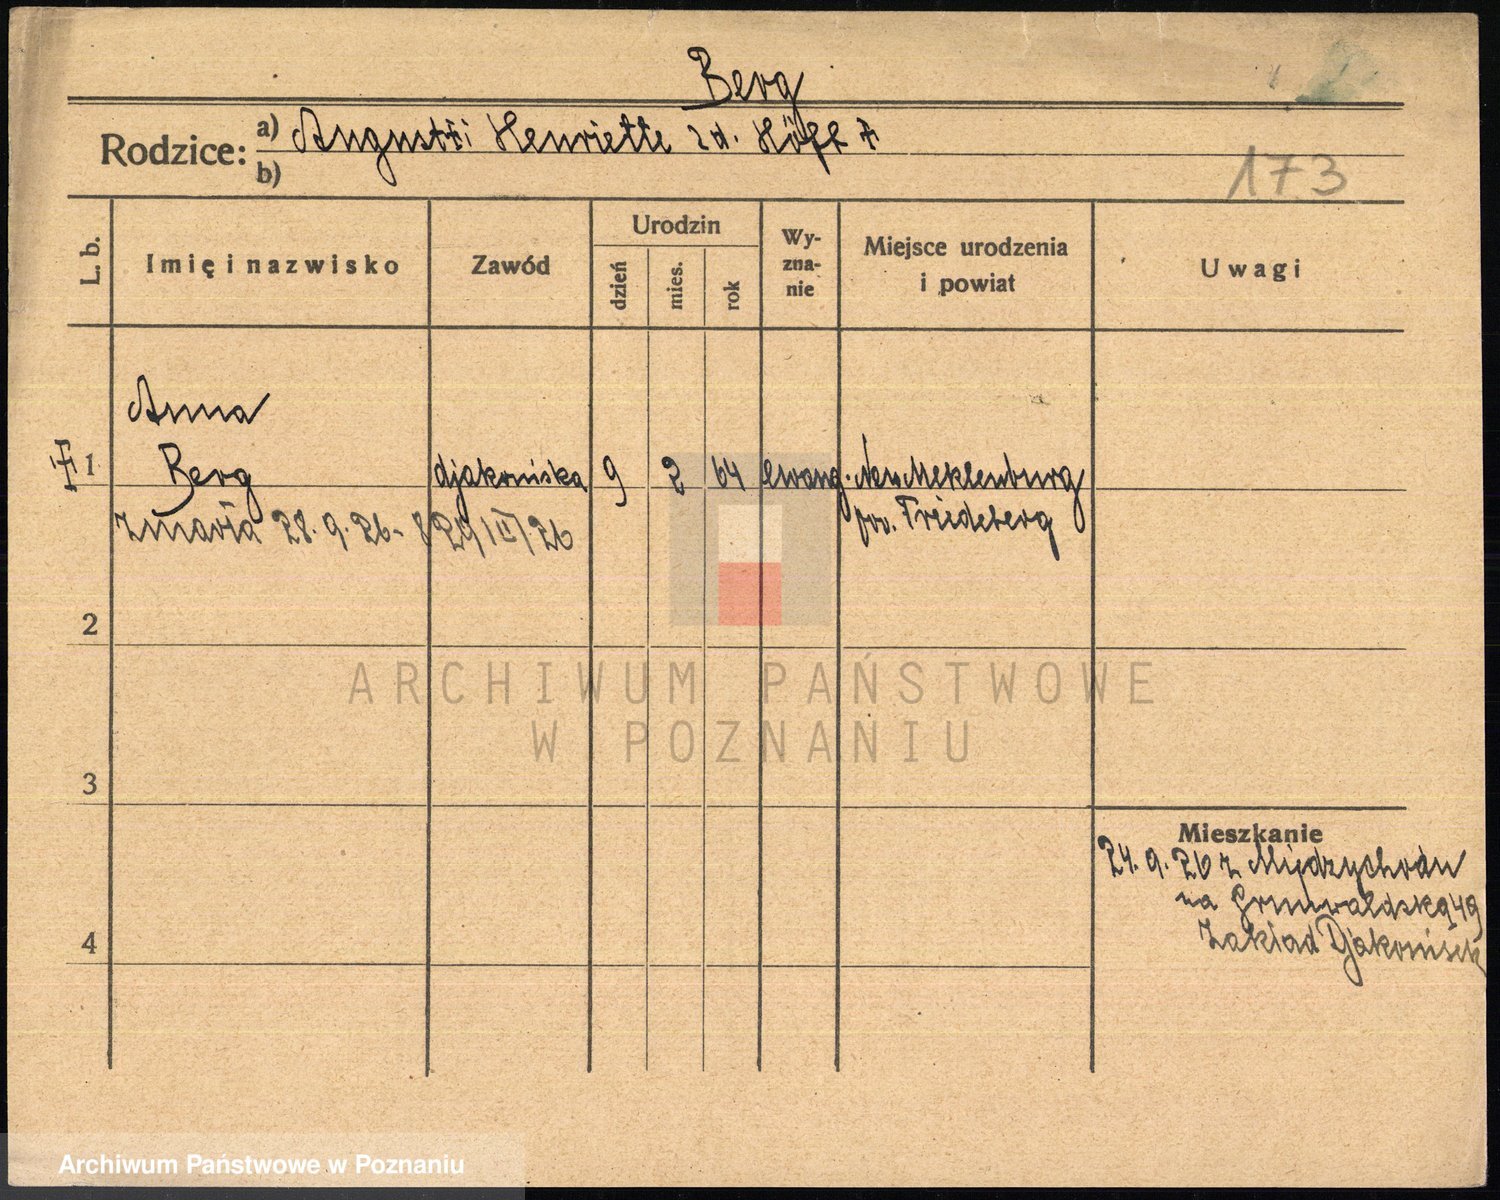 Berg
Rodzice: a) August † i Henriette zd. Höft †
b)
173
L. b.
Imię i nazwisko
Zawód
Urodzin
dzień
mies.
rok
Wy-
zna-
nie
Miejsce urodzenia
i powiat
Uwagi
Anna
† 1 Berg djakoniska 9 2 64 ewang. Neu Meklenburg
zmarła 28. 9. 26 - 29/IX/26 pow. Friedeberg
2
ARCHIWUM PAŃSTWOWE
W POZNANIU
3
Mieszkanie
24. 9. 26 z Międzychodu
na Grunwaldską 49
4 Zakład Djakonisek
Archiwum Państwowe w Poznaniu